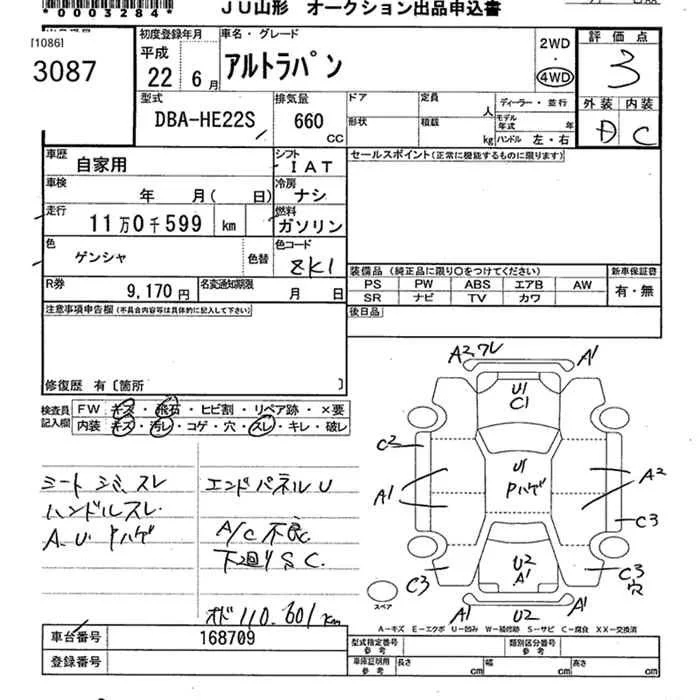 *0003284*
JU山形 オークション出品申込書
[1086]
3087
初度登録年月
平成
22年 6月
車名・グレード
アルトラパン
2WD
・
4WD
評価点
3
外装 内装
D C
型式
DBA-HE22S
排気量
660
CC
ドア
定員
人
形状
積載
kg
ディーラー・並行
モデル年式 年
ハンドル 左・右
車歴
自家用
シフト
IAT
セールスポイント(正常に機能するものに限ります)
車検
年 月( 日)
冷房
ナシ
走行
11万0千599 km
燃料
ガソリン
色
ゲンシャ
色替
色コード
ZK1
R券
9,170円
名変通知期限
月 日
装備品(純正品に限り○をつけてください)
PS PW ABS エアB AW
SR ナビ TV カワ
新車保証書
有・無
注意事項申告欄(不具合内容等は具体的に記入して下さい)
後日品
修復歴 有〔箇所 〕
検査員
記入欄
FW キズ・飛石・ヒビ割・リペア跡・×要
内装 キズ・汚レ・コゲ・穴・スレ・キレ・破レ
シートシミ、スレ
ハンドルスレ
A.U.Pハゲ
エンドパネルU
A/C不良
下回りS C.
オド110.601km
A2ワレ
A1
U1
C1
C2
U1
Pハゲ
A1
A2
C3
U2
A1
C3
C3
穴
スペア
A1
U2
A1
A−キズ E−エクボ U−凹み W−補修跡 S−サビ C−腐食 XX−交換済
車台番号
168709
登録番号
型式指定番号
参考
類別区分番号
参考
車庫証明用
参考
長さ cm
幅 cm
高さ cm